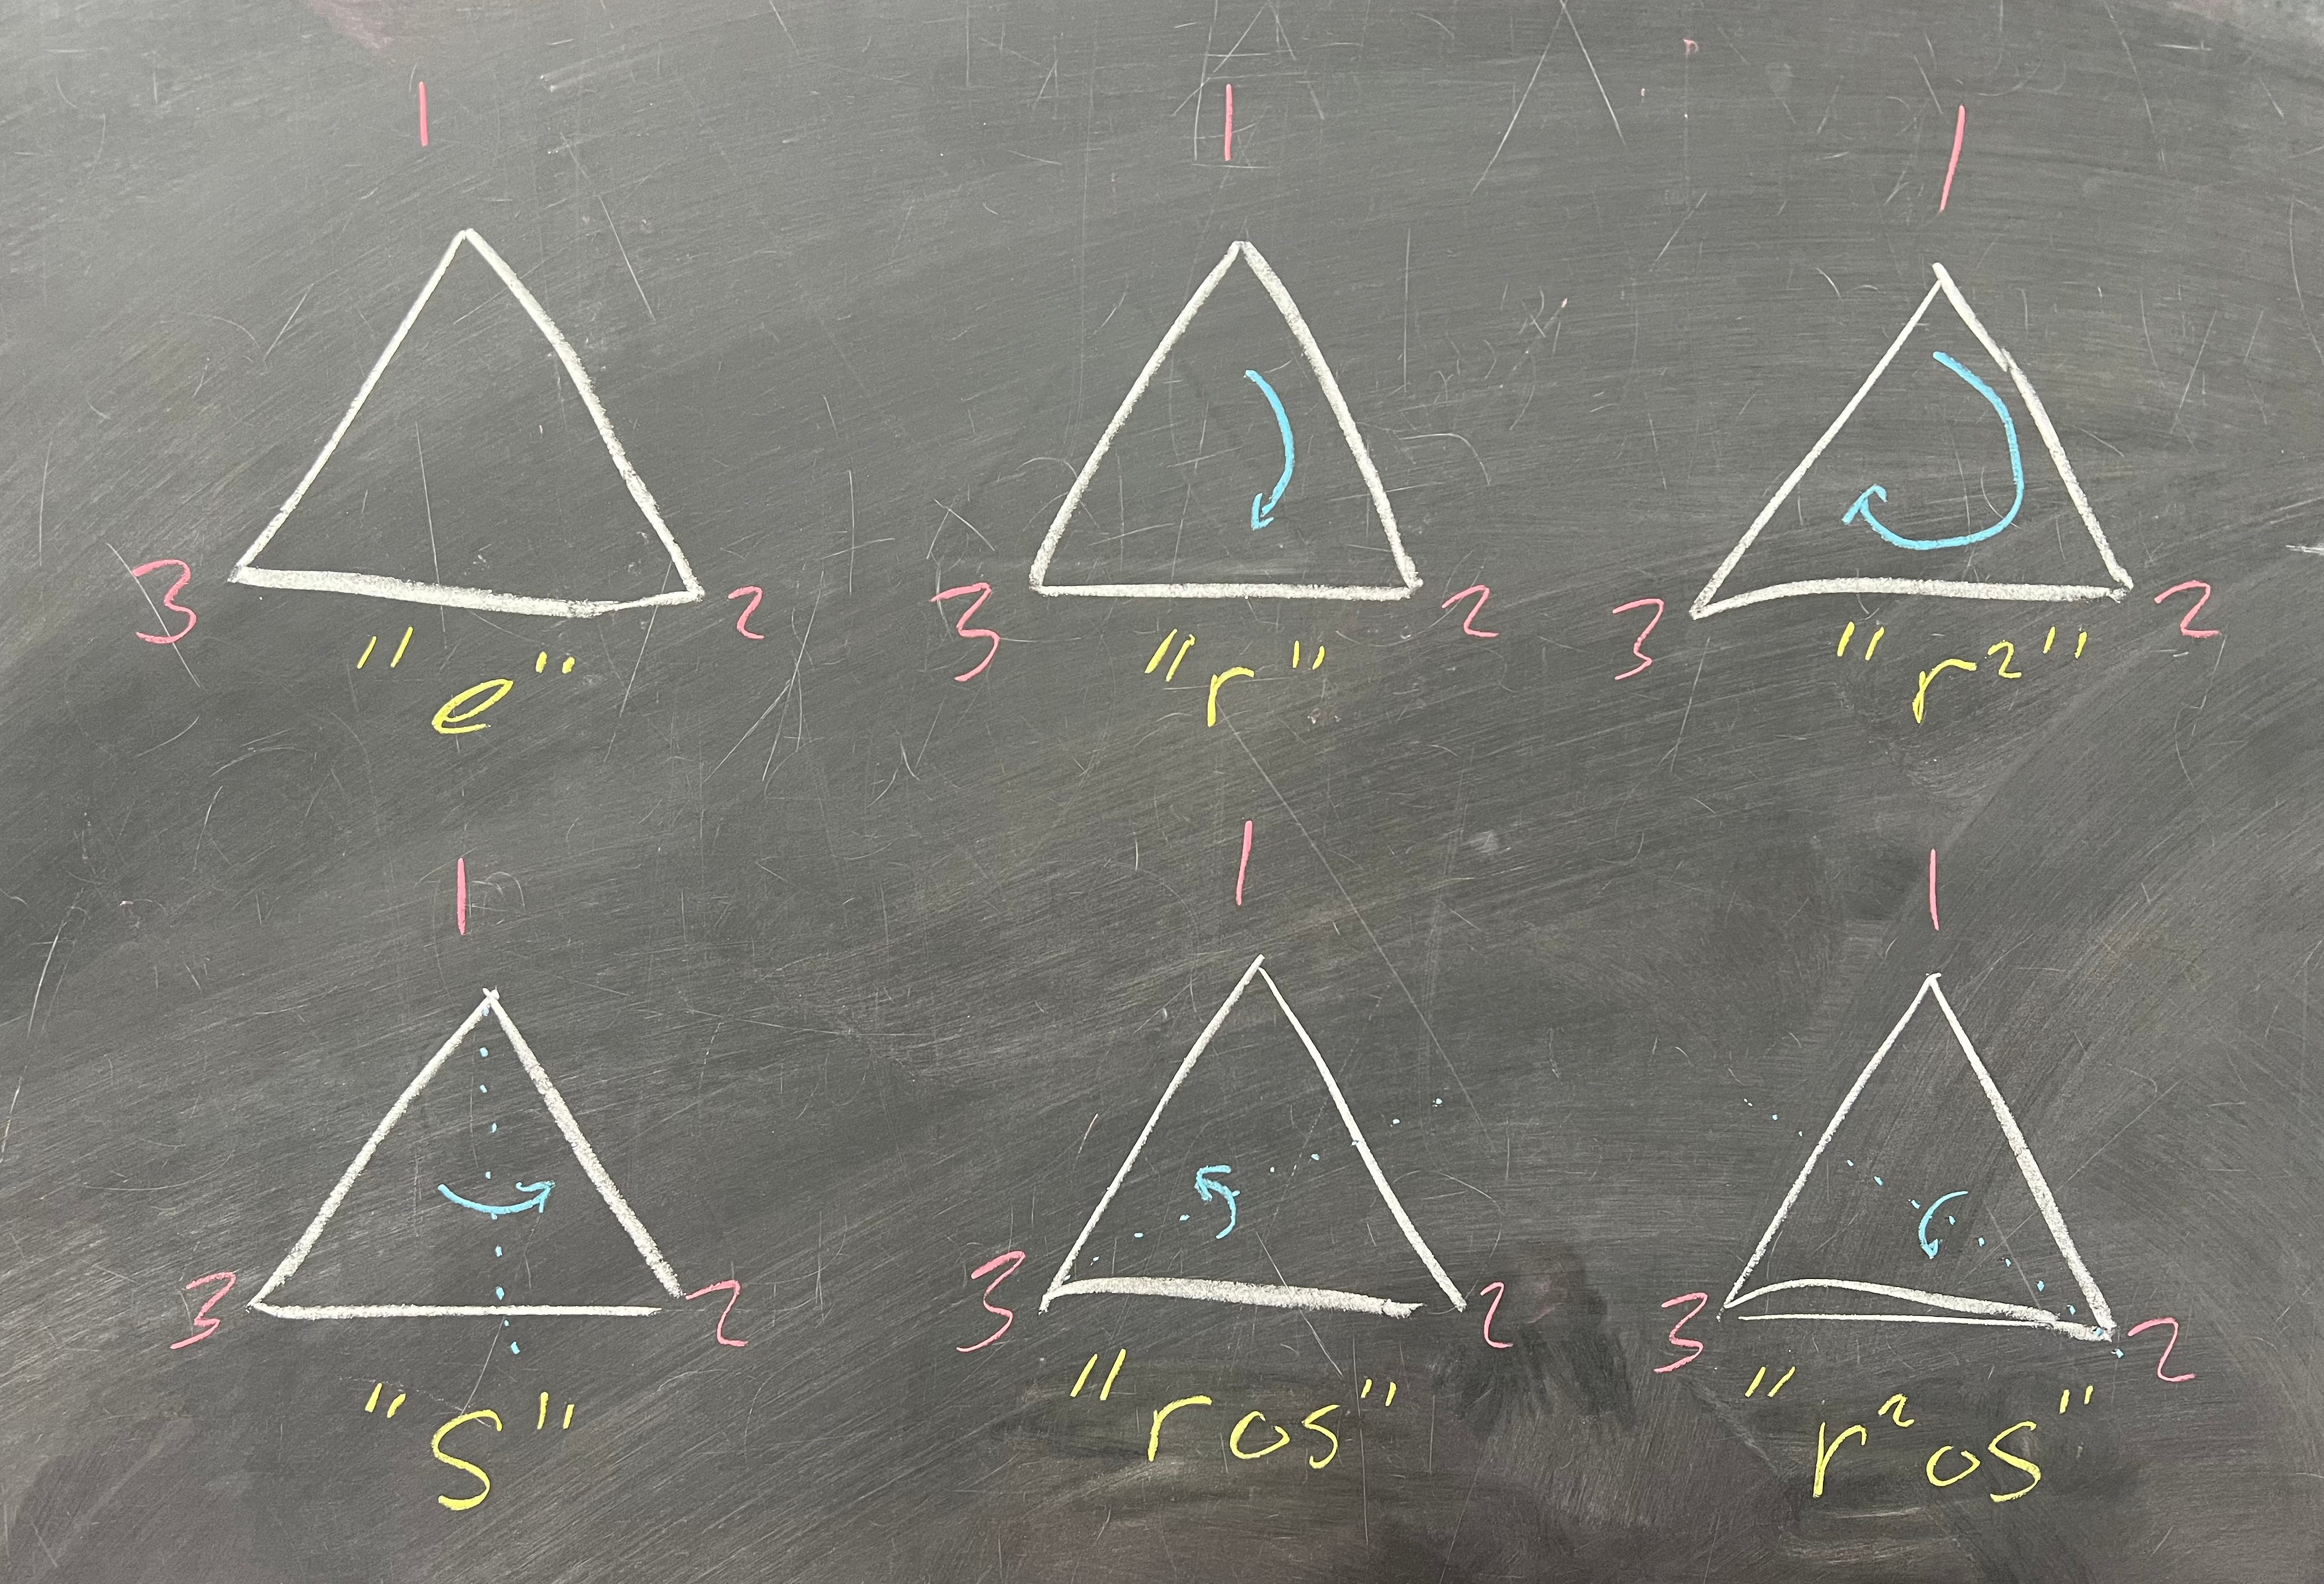 1 1 1
3 2 3 2 3 2
"e" "r" "r²"
1 1 1
3 2 3 2 3 2
"s" "r∘s" "r²∘s"